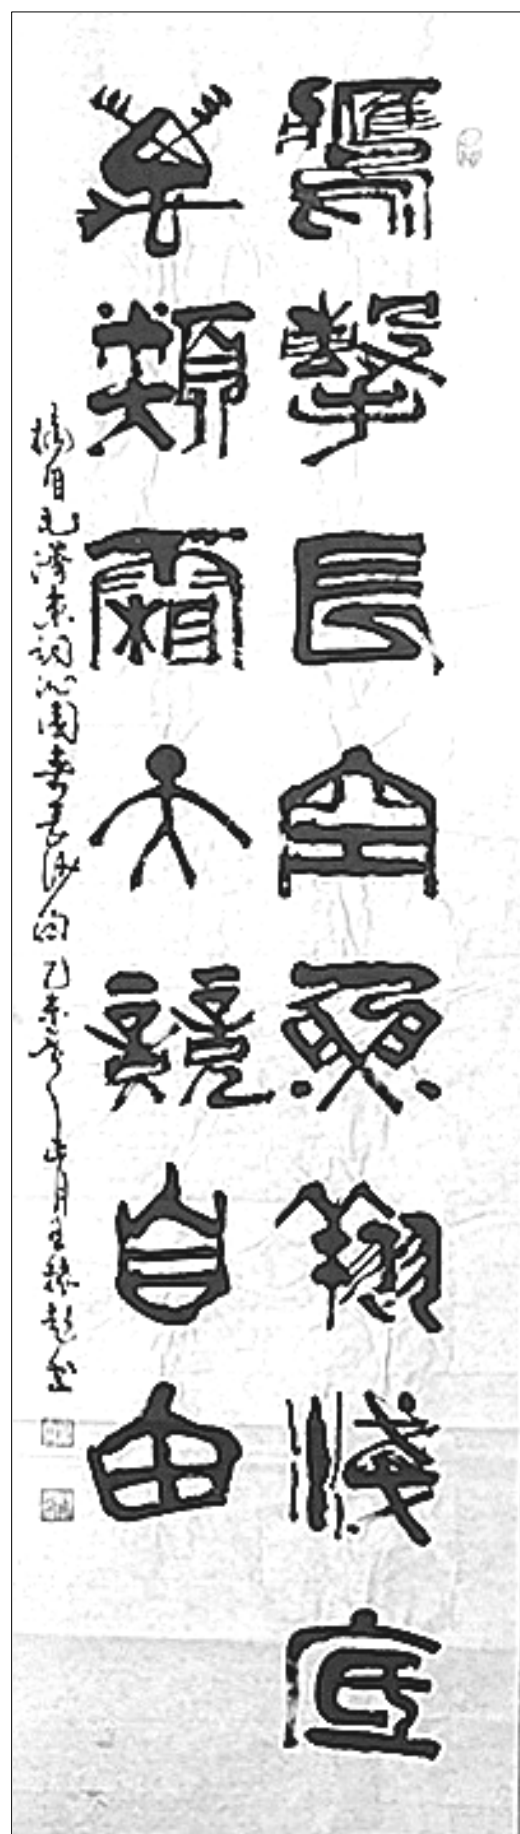 鷹擊長空魚翔淺底
萬類霜天競自由
摘自毛澤東詞沁園春長沙句 乙未年正月王